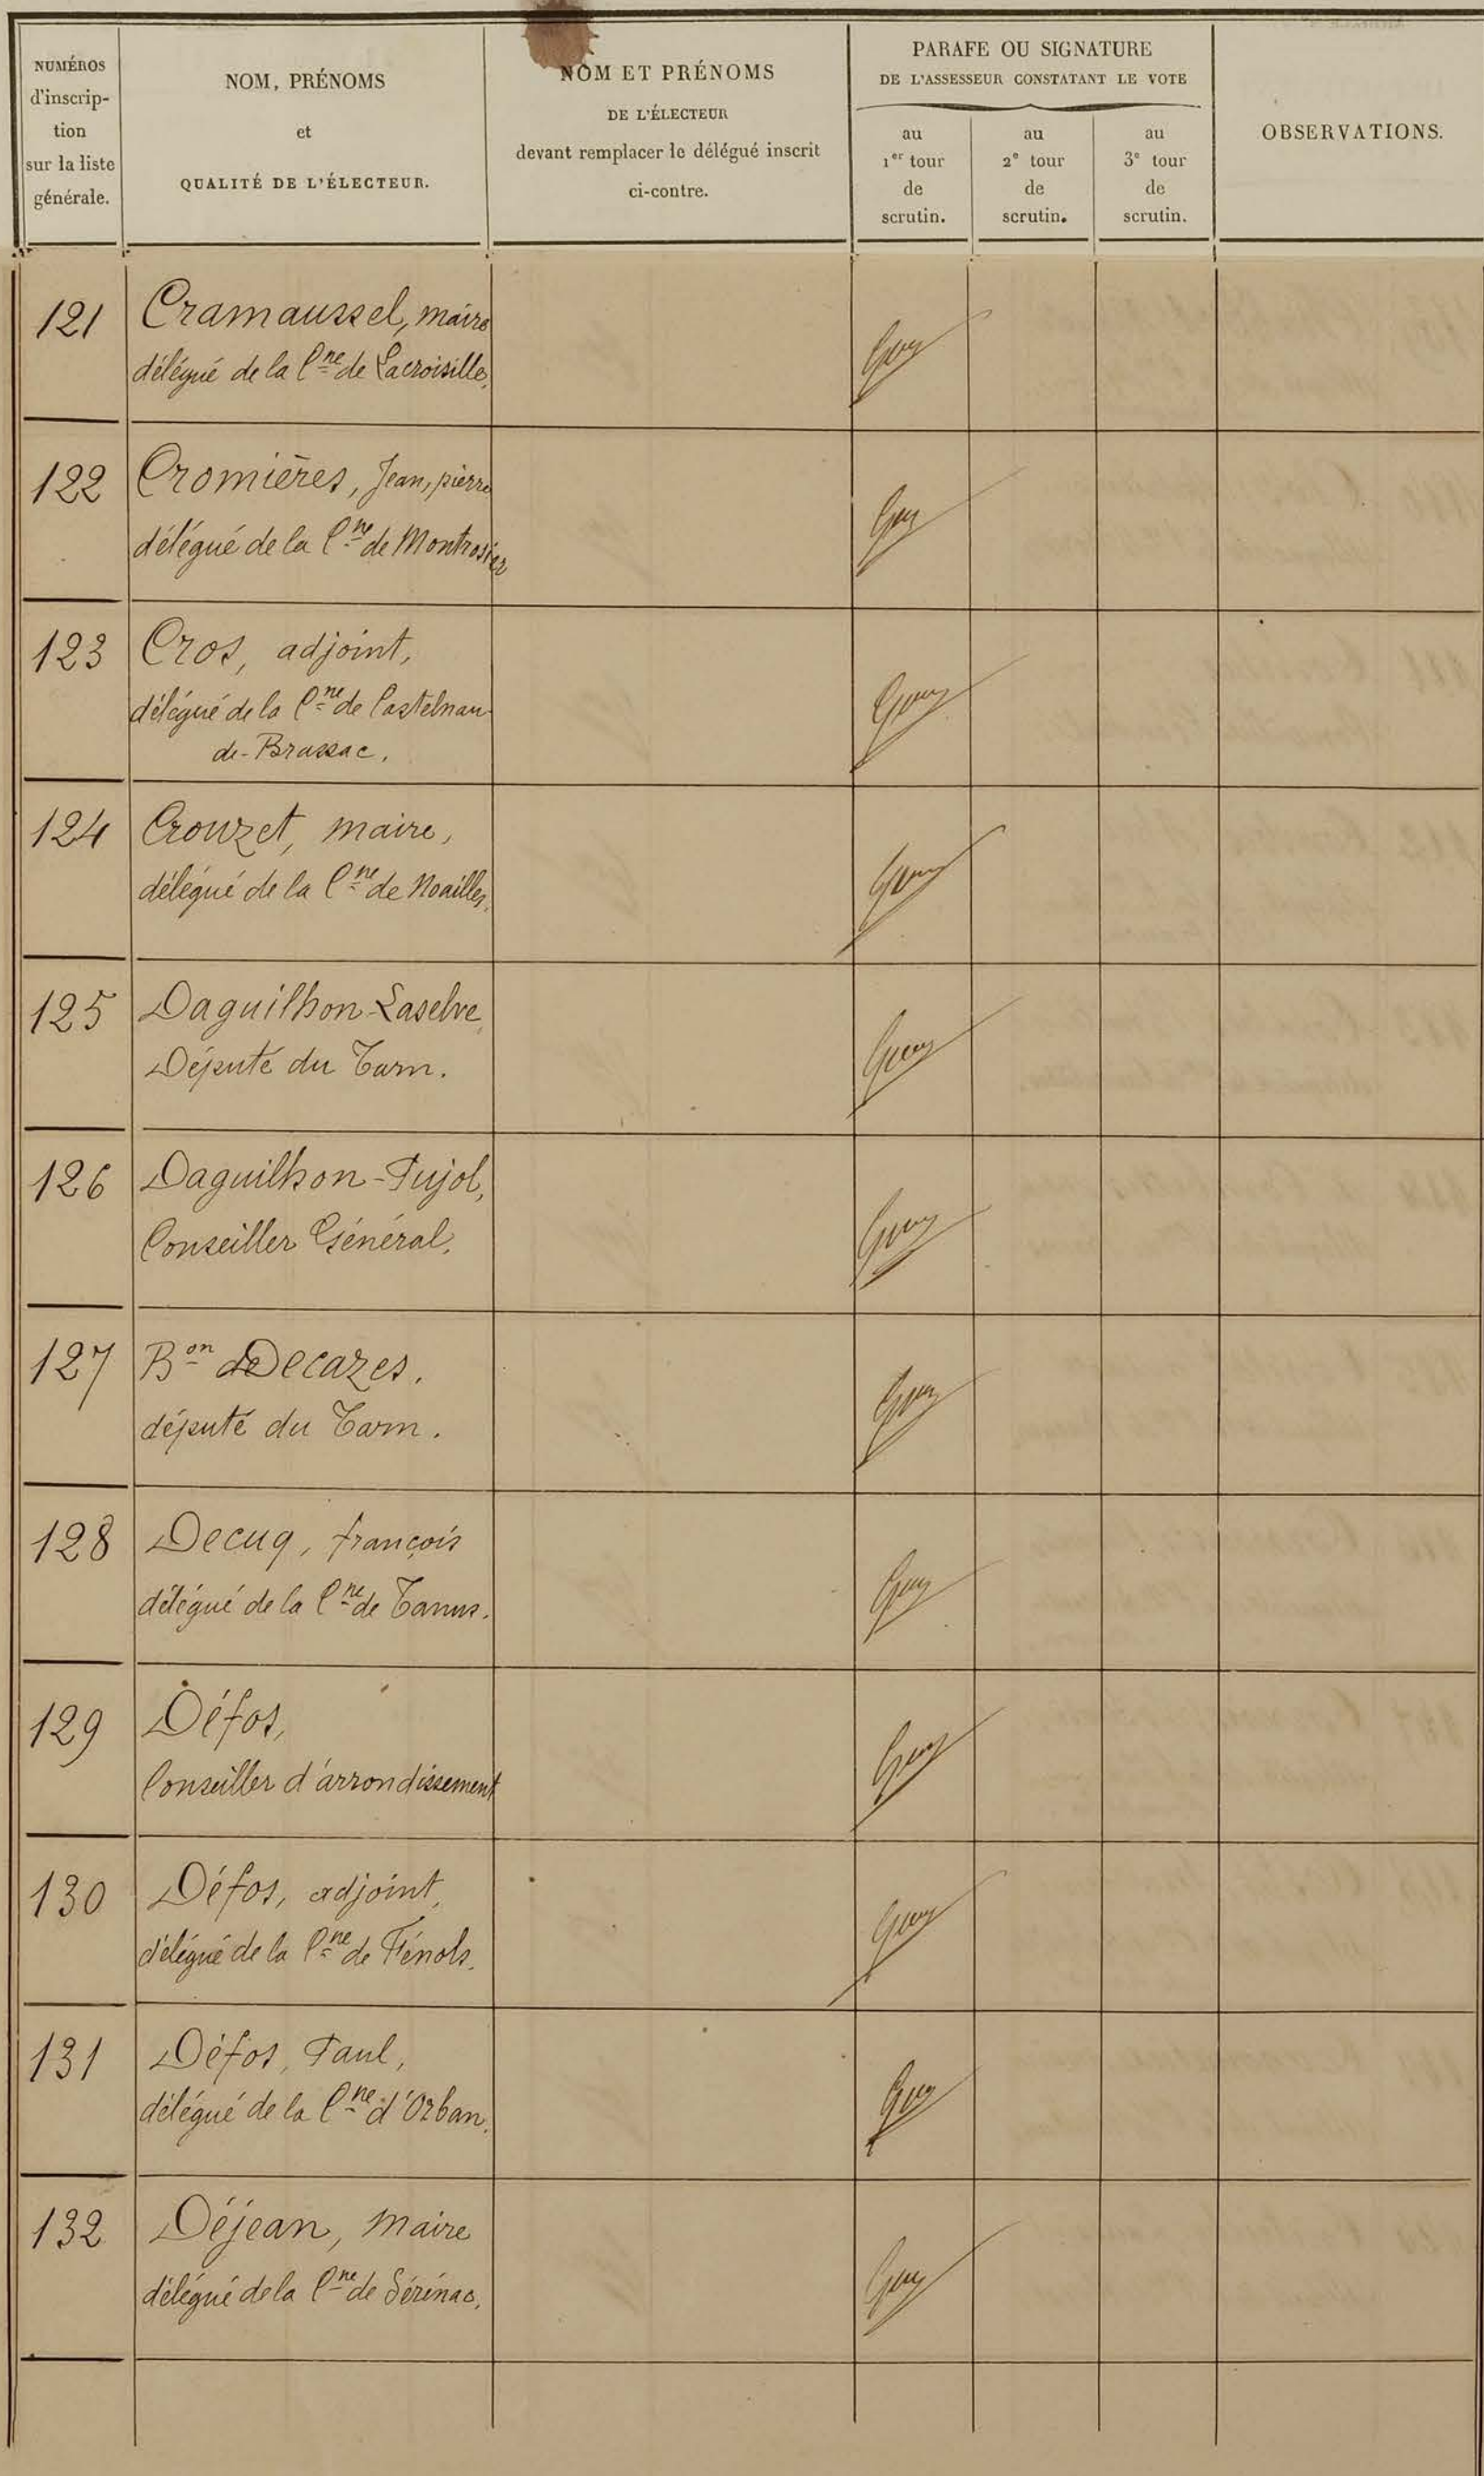 NUMÉROS
d'inscrip-
tion
sur la liste
générale.
NOM, PRÉNOMS
et
QUALITÉ DE L'ÉLECTEUR.
NOM ET PRÉNOMS
DE L'ÉLECTEUR
devant remplacer le délégué inscrit
ci-contre.
PARAFE OU SIGNATURE
DE L'ASSESSEUR CONSTATANT LE VOTE
au
1er tour
de
scrutin.
au
2e tour
de
scrutin.
au
3e tour
de
scrutin.
OBSERVATIONS.
121 Cramaussel, maire
délégué de la Cne de Lacroisille,
122 Cromières, Jean, pierre
délégué de la Cne de Montrosier
123 Cros, adjoint,
délégué de la Cne de Castelnau-
de-Brassac.
124 Crouzet, maire,
délégué de la Cne de Noailles,
125 Daguilhon-Laselve,
Député du Tarn.
126 Daguilhon-Pujol,
Conseiller Général,
127 Bon de Decazes.
député du Tarn.
128 Decuq, françois
délégué de la Cne de Tanus.
129 Défos,
Conseiller d'arrondissement
130 Défos, adjoint,
délégué de la Cne de Fénols.
131 Défos, Paul,
délégué de la Cne d'Orban.
132 Déjean, maire
délégué de la Cne de Sérénac,